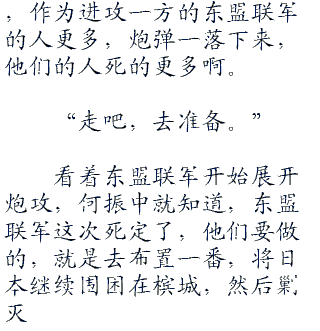 ，作为进攻一方的东盟联军
的人更多，炮弹一落下来，
他们的人死的更多啊。
“走吧，去准备。”
看着东盟联军开始展开
炮攻，何振中就知道，东盟
联军这次死定了，他们要做
的，就是去布置一番，将日
本继续围困在槟城，然后剿
灭